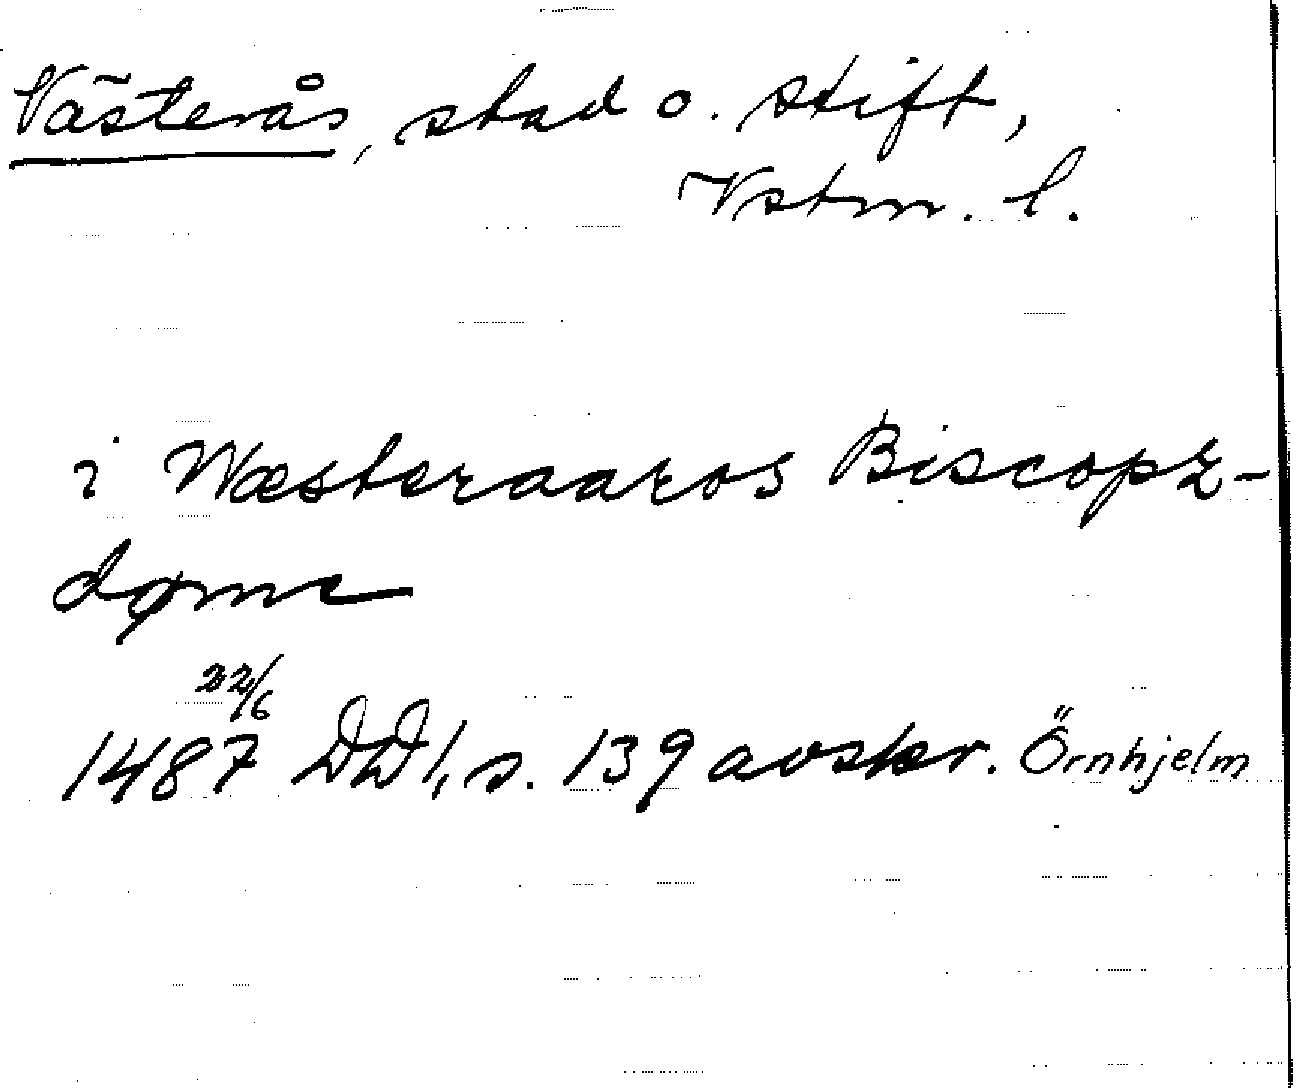 Västerås, stad o. stift,
Vstm. l.
i Wæsteraaros Biscopz-
døme
22/6
1487 DD 1, s. 139 avskr. Örnhjelm